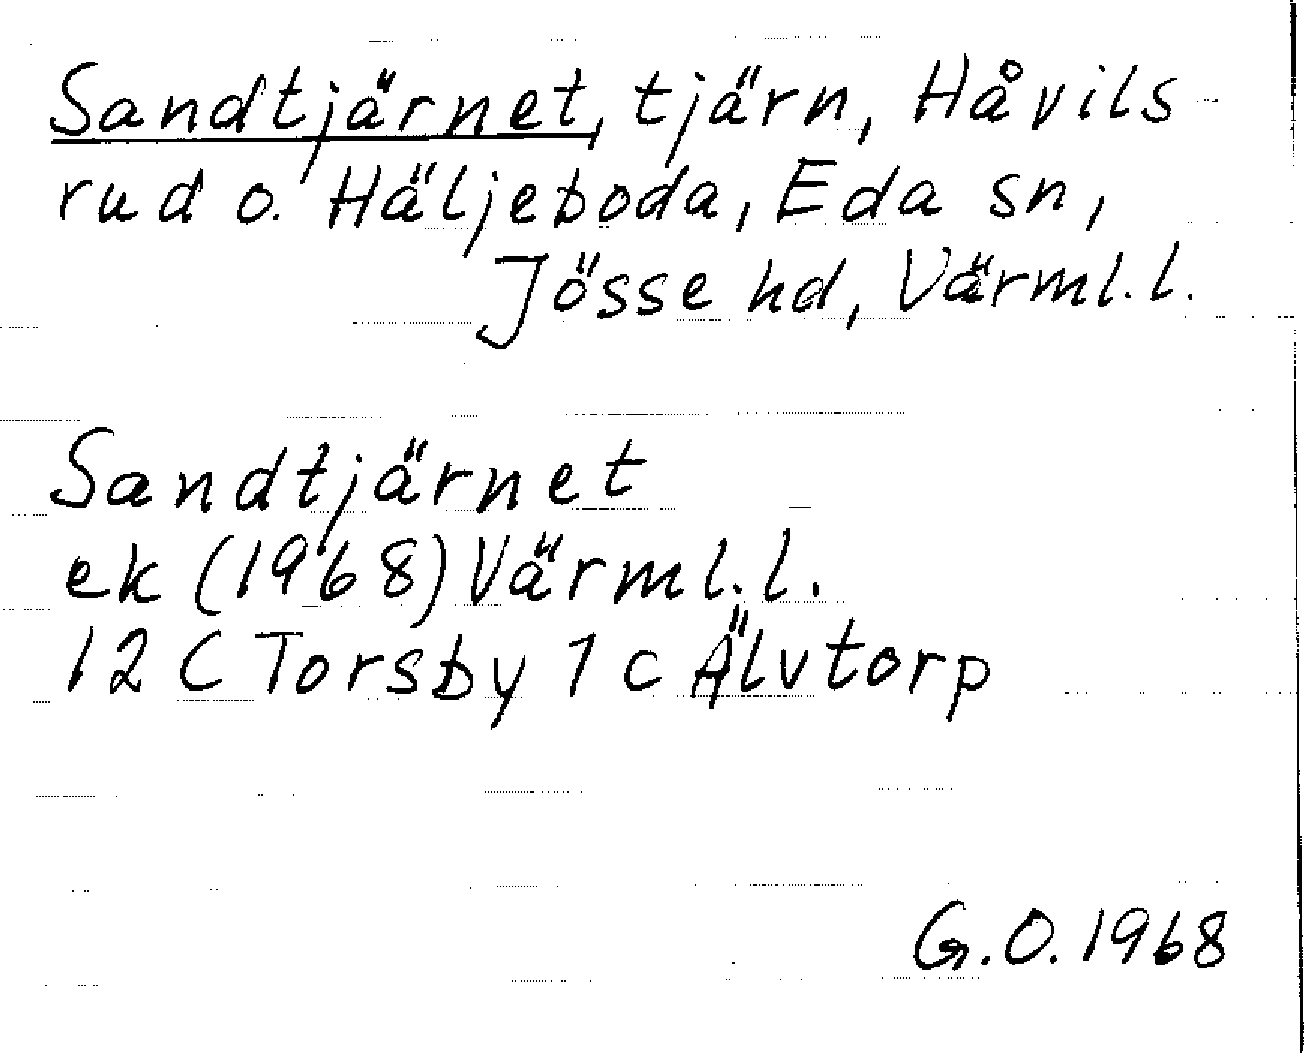 Sandtjärnet, tjärn, Håvils-
rud o. Häljeboda, Eda sn,
Jösse hd, Värml. l.
Sandtjärnet
ek (1968) Värml. l.
12 C Torsby 1 c Älvtorp
G.O. 1968